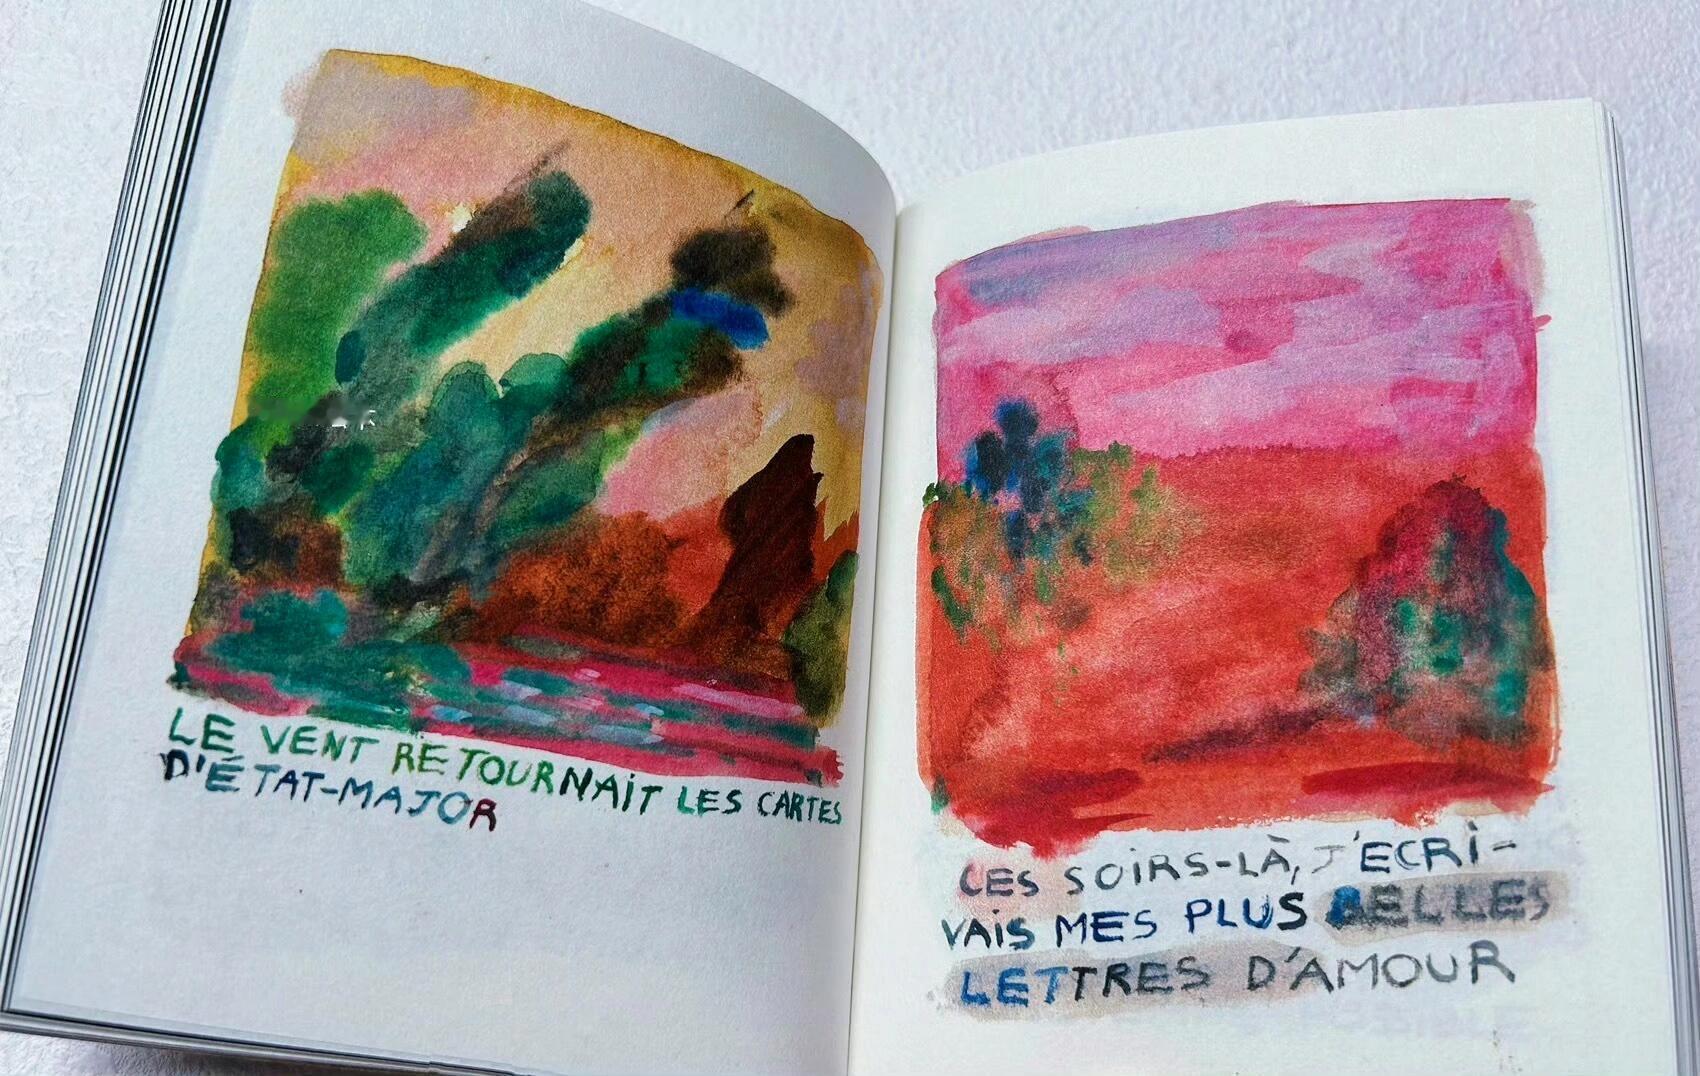 LE VENT RETOURNAIT LES CARTES
D'ÉTAT-MAJOR
CES SOIRS-LÀ, J'ECRI-
VAIS MES PLUS BELLES
LETTRES D'AMOUR